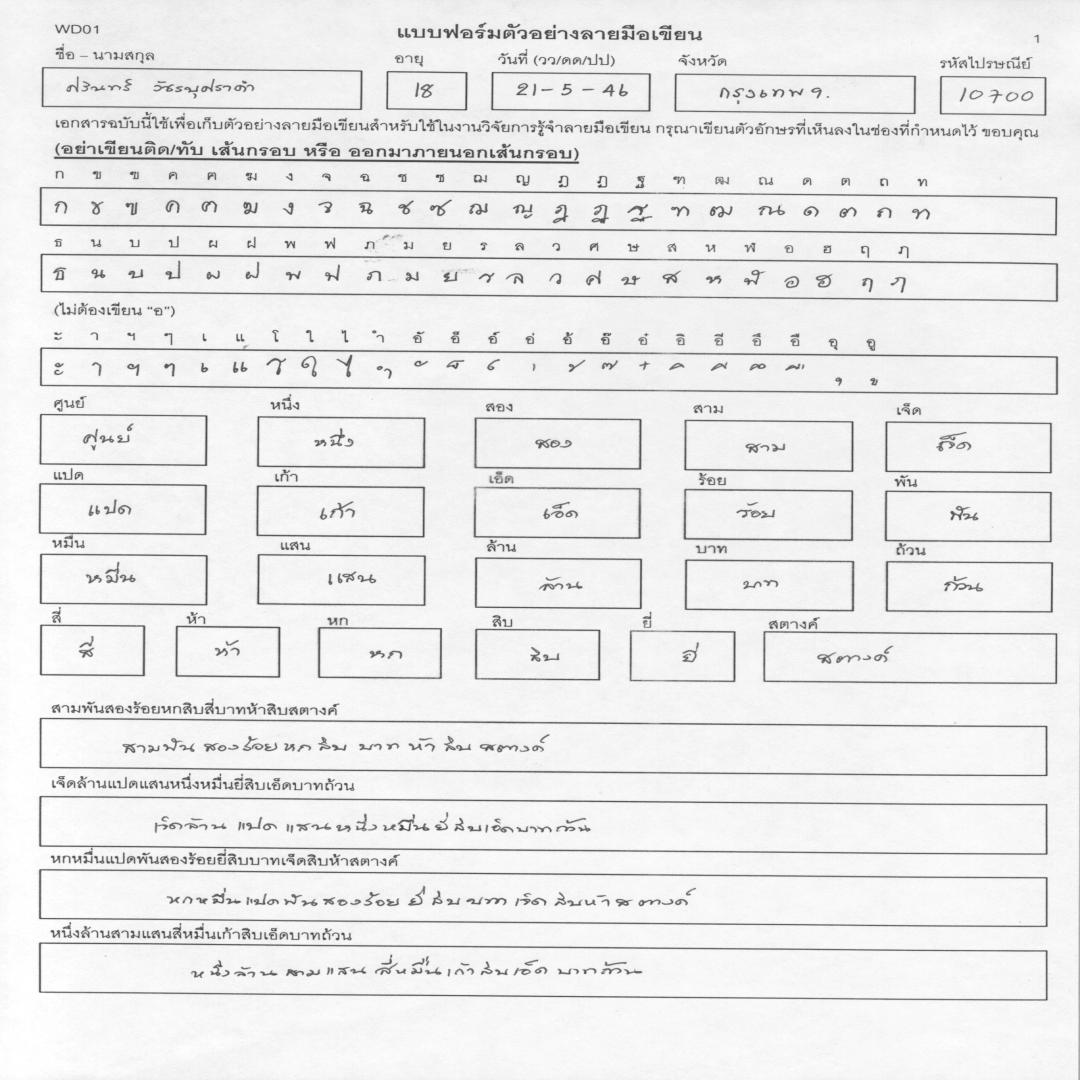 WD01
แบบฟอร์มตัวอย่างลายมือเขียน
1
ชื่อ – นามสกุล อายุ วันที่ (วว/ดด/ปป) จังหวัด รหัสไปรษณีย์
18 21-5-46 กรุงเทพฯ. 10700
เอกสารฉบับนี้ใช้เพื่อเก็บตัวอย่างลายมือเขียนสำหรับใช้ในงานวิจัยการรู้จำลายมือเขียน กรุณาเขียนตัวอักษรที่เห็นลงในช่องที่กำหนดไว้ ขอบคุณ
(อย่าเขียนติด/ทับ เส้นกรอบ หรือ ออกมาภายนอกเส้นกรอบ)
ก ข ฃ ค ฅ ฆ ง จ ฉ ช ซ ฌ ญ ฎ ฏ ฐ ฑ ฒ ณ ด ต ถ ท
ก ข ฃ ค ฅ ฆ ง จ ฉ ช ซ ฌ ญ ฎ ฏ ฐ ฑ ฒ ณ ด ต ถ ท
ธ น บ ป ผ ฝ พ ฟ ภ ม ย ร ล ว ศ ษ ส ห ฬ อ ฮ ฤ ฦ
ธ น บ ป ผ ฝ พ ฟ ภ ม ย ร ล ว ศ ษ ส ห ฬ อ ฮ ฤ ฦ
(ไม่ต้องเขียน "อ")
ะ า ฯ ๆ เ แ โ ใ ไ ำ อั อ็ อ์ อ่ อ้ อ๊ อ๋ อิ อี อึ อื อุ อู
ะ า ฯ ๆ เ แ โ ใ ไ ำ ั ็ ์ ่ ้ ๊ ๋ ิ ี ึ ื ุ ู
ศูนย์ หนึ่ง สอง สาม เจ็ด
ศูนย์ หนึ่ง สอง สาม เจ็ด
แปด เก้า เอ็ด ร้อย พัน
แปด เก้า เอ็ด ร้อย พัน
หมื่น แสน ล้าน บาท ถ้วน
หมื่น แสน ล้าน บาท ถ้วน
สี่ ห้า หก สิบ ยี่ สตางค์
สี่ ห้า หก สิบ ยี่ สตางค์
สามพันสองร้อยหกสิบสี่บาทห้าสิบสตางค์
สามพัน สองร้อย หก สิบ บาท ห้า สิบ สตางค์
เจ็ดล้านแปดแสนหนึ่งหมื่นยี่สิบเอ็ดบาทถ้วน
เจ็ดล้าน แปด แสน หนึ่ง หมื่น ยี่ สิบเอ็ดบาทถ้วน
หกหมื่นแปดพันสองร้อยยี่สิบบาทเจ็ดสิบห้าสตางค์
หกหมื่น แปด พัน สองร้อย ยี่ สิบ บาท เจ็ด สิบห้า สตางค์
หนึ่งล้านสามแสนสี่หมื่นเก้าสิบเอ็ดบาทถ้วน
หนึ่งล้าน สาม แสน สี่หมื่น เก้า สิบ เอ็ด บาทถ้วน